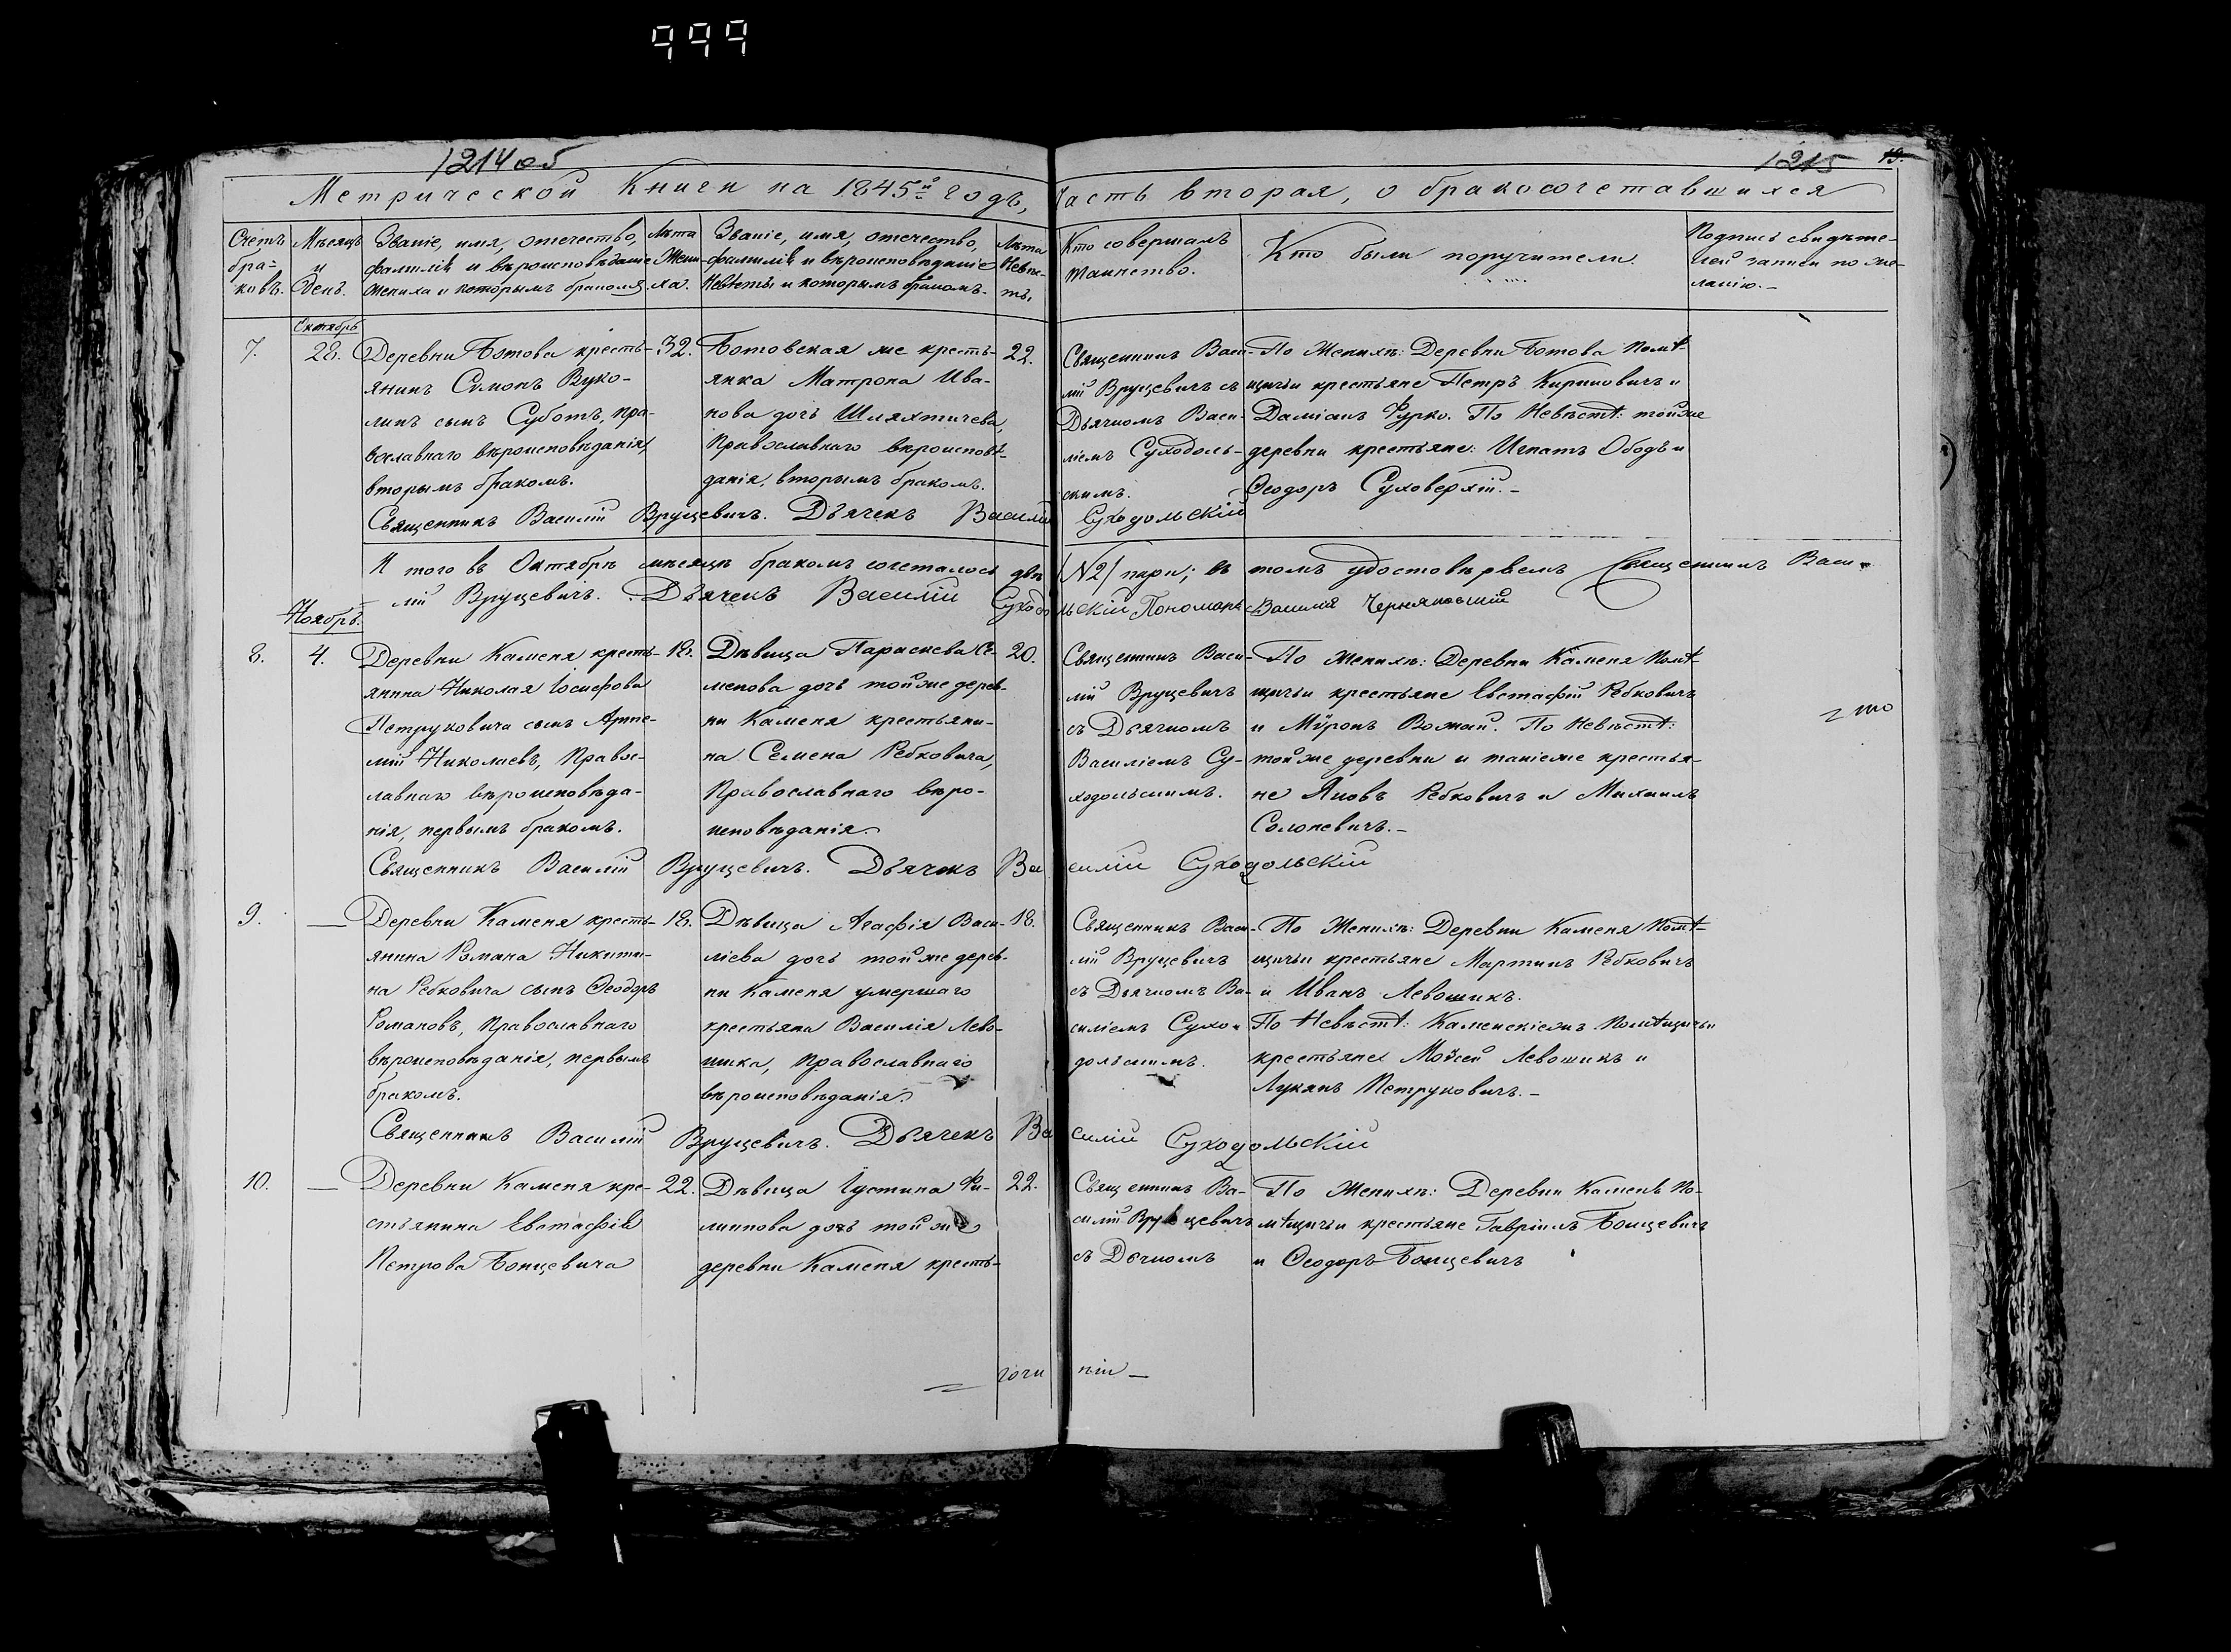 999
1214 об
1215
19.
Метрической Книги на 1845й годъ, Часть вторая, о бракосочетавшихся
Счетъ
бра-
ковъ.
Мѣсяцъ
и
День.
Званіе, имя, отечество,
фамилія и вѣроисповѣданіе
Жениха и которымъ бракомъ.
Лѣта
Жени-
ха.
Званіе, имя, отечество,
фамилія и вѣроисповѣданіе
Невѣсты и которымъ бракомъ.
Лѣта
Невѣс-
ты.
Кто совершалъ
таинство.
Кто были поручители.
Подпись свидѣте-
лей записи по же-
ланію.
Октябрь
7.
28.
Деревни Ботова кресть-
янинъ Симонъ Вуко-
линъ сынъ Суботъ, пра-
вославнаго вѣроисповѣданія,
вторымъ бракомъ.
32.
Ботовская же кресть-
янка Матрона Ива-
нова дочь Шляхтичева,
Православнаго вѣроисповѣ-
данія, вторымъ бракомъ.
22.
Священникъ Васи-
лій Вруцевичъ съ
Дьячкомъ Васи-
ліемъ Суходоль-
скимъ.
По Женихѣ: Деревни Ботова Помѣ-
щичьи крестьяне Петръ Кириловичъ и
Даміанъ Фурко. По Невѣстѣ: тойже
деревни крестьяне: Игнатъ Ободъ и
Ѳеодоръ Суховерхій.
Священникъ Василій Вруцевичъ. Дьячекъ Василій Суходольскій
И того въ Октябрѣ мѣсяцѣ бракомъ сочеталось двѣ [№2] пари; въ томъ удостовѣряемъ Священникъ Васи-
лій Вруцевичъ. Дьячекъ Василій Суходольскій Пономарь Василій Черняковскій
Ноябрь.
8.
4.
Деревни Каменя кресть-
янина Николая Іосифова
Петруковича сынъ Арте-
мій Николаевъ, Правос-
лавнаго вѣроисповѣда-
нія, первымъ бракомъ.
18.
Дѣвица Параскева Се-
менова дочь тойже дерев-
ни Каменя крестьяни-
на Семена Ребковича,
Православнаго вѣро-
исповѣданія.
20.
Священникъ Васи-
лій Вруцевичъ
съ Дьячкомъ
Василіемъ Су-
ходольскимъ.
По Женихѣ: Деревни Каменя Помѣ-
щичьи крестьяне Евстафій Ребковичъ
и Мѵронъ Вожай. По Невѣстѣ:
тойже деревни и такіеже крестья-
не Яковъ Ребковичъ и Михаилъ
Солоневичъ.
Священникъ Василій Вруцевичъ. Дьячекъ Василій Суходольскій
9.
—
Деревни Каменя кресть-
янина Романа Никити-
на Ребковича сынъ Ѳеодоръ
Романовъ, Православнаго
вѣроисповѣданія, первымъ
бракомъ.
18.
Дѣвица Агафія Васи-
ліева дочь тойже дерев-
ни Каменя умершаго
крестьяна Василія Лево-
шика, Православнаго
вѣроисповѣданія.
18.
Священникъ Васи-
лій Вруцевичъ
съ Дьячкомъ Ва-
силіемъ Сухо-
дольскимъ.
По Женихѣ: Деревни Каменя Помѣ-
щичьи крестьяне Мартинъ Ребковичъ
и Иванъ Левошикъ.
По Невѣстѣ: Каменскіежъ Помѣщичьи
крестьяне Моѵсей Левошикъ и
Лукянъ Петруковичъ.
Священникъ Василій Вруцевичъ. Дьячекъ Василій Суходольскій
10.
—
Деревни Каменя кре-
стьянина Евстафія
Петрова Бонцевича
22.
Дѣвица Іустина Фи-
липпова дочь тойже
деревни Каменя кресть-
22.
Священникъ Ва-
силій Вруцевичъ
съ Дячкомъ
По Женихѣ: Деревни Каменѣ По-
мѣщичьи крестьяне Гавріилъ Бонцевичъ
и Ѳеодоръ Бонцевичъ